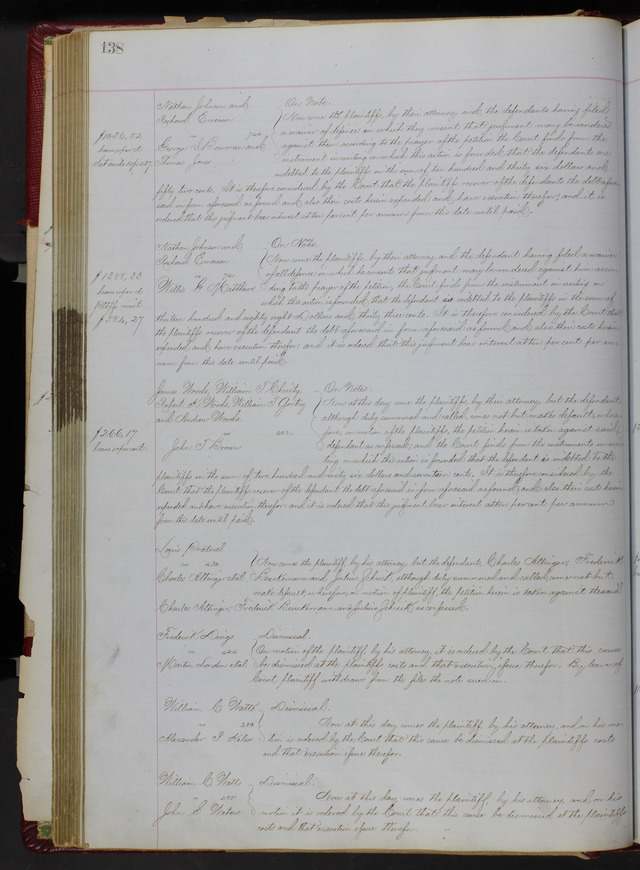 138
Nathan Johnson and On Note.
Richard Emerson Now come the plaintiffs, by their attorney, and the defendants having filed
a waiver of defence in which they consent that judgment may be rendered
George I. Bowman and against them according to the prayer of the petition, the Court finds from the
Thomas Jones instrument in writing on which this action is founded, that the defendants are
indebted to the plaintiffs in the sum of ten hundred and thirty six dollars and
fifty two cents. It is therefore considered by the Court that the plaintiffs recover of the defendants the debt afore-
said in form aforesaid as found, and also their costs herein expended and have execution therefor; and it is
ordered that this judgment bear interest at ten per cent per annum from this date until paid.
Nathan Johnson and On Note
Richard Emerson Now come the plaintiffs, by their attorney, and the defendant having filed a waiver
of all defence in which he consents that judgment may be rendered against him accor-
Willis G. Matthews ding to the prayer of the petition, the Court finds from the instrument in writing on
which this action is founded, that the defendant is indebted to the plaintiffs in the sum of
thirteen hundred and eighty eight Dollars and thirty three cents. It is therefore considered by the Court that
the plaintiffs recover of the defendant the debt aforesaid in form aforesaid as found, and also their costs herein
expended and have execution therefor; and it is ordered that this judgment bear interest at ten per cent per an-
num from this date until paid.
$266,17
James Woods, William T. Christy, On Notes.
Robert K. Woods, William T. Gentry Now at this day come the plaintiffs, by their attorney, but the defendant,
and Andrew Woods although duly summoned and called, comes not but makes default; where-
fore, on motion of the plaintiffs, the petition herein is taken against said
John T. Brown defendant as confessed; and the Court finds from the instruments in wri-
ting on which this action is founded that the defendant is indebted to the
plaintiffs in the sum of two hundred and sixty six dollars and seventeen cents. It is therefore considered by the
Court that the plaintiffs recover of the defendant the debt aforesaid in form aforesaid as found, and also their costs herein
expended and have execution therefor; and it is ordered that this judgment bear interest at ten per cent per annum
from this date until paid.
Louis
Now comes the plaintiff, by his attorney, but the defendants, Charles Attinger, Frederick
Charles Attinger et al. and Julius Scheidt, although duly summoned and called, come not but
make default; wherefore, on motion of plaintiff, the petition herein is taken against the said
Charles Attinger, Frederick and Julius Scheidt, as confessed.
Frederick Dings Dismissal.
On motion of the plaintiff, by his attorney, it is ordered by the Court that this cause
Martin et al. be dismissed at the plaintiffs costs and that execution issue therefor. By leave of
Court, plaintiff withdraws from the file the note sued on.
William C. Watts Dismissal.
Now at this day comes the plaintiff, by his attorney, and on his mo-
Alexander J. tion is ordered by the Court that this cause be dismissed at the plaintiffs costs
and that execution issue therefor.
William C. Watts Dismissal.
Now at this day comes the plaintiff, by his attorney, and, on his
John S. Waters motion it is ordered by the Court that this cause be dismissed at the plaintiffs
costs and that execution issue therefor.